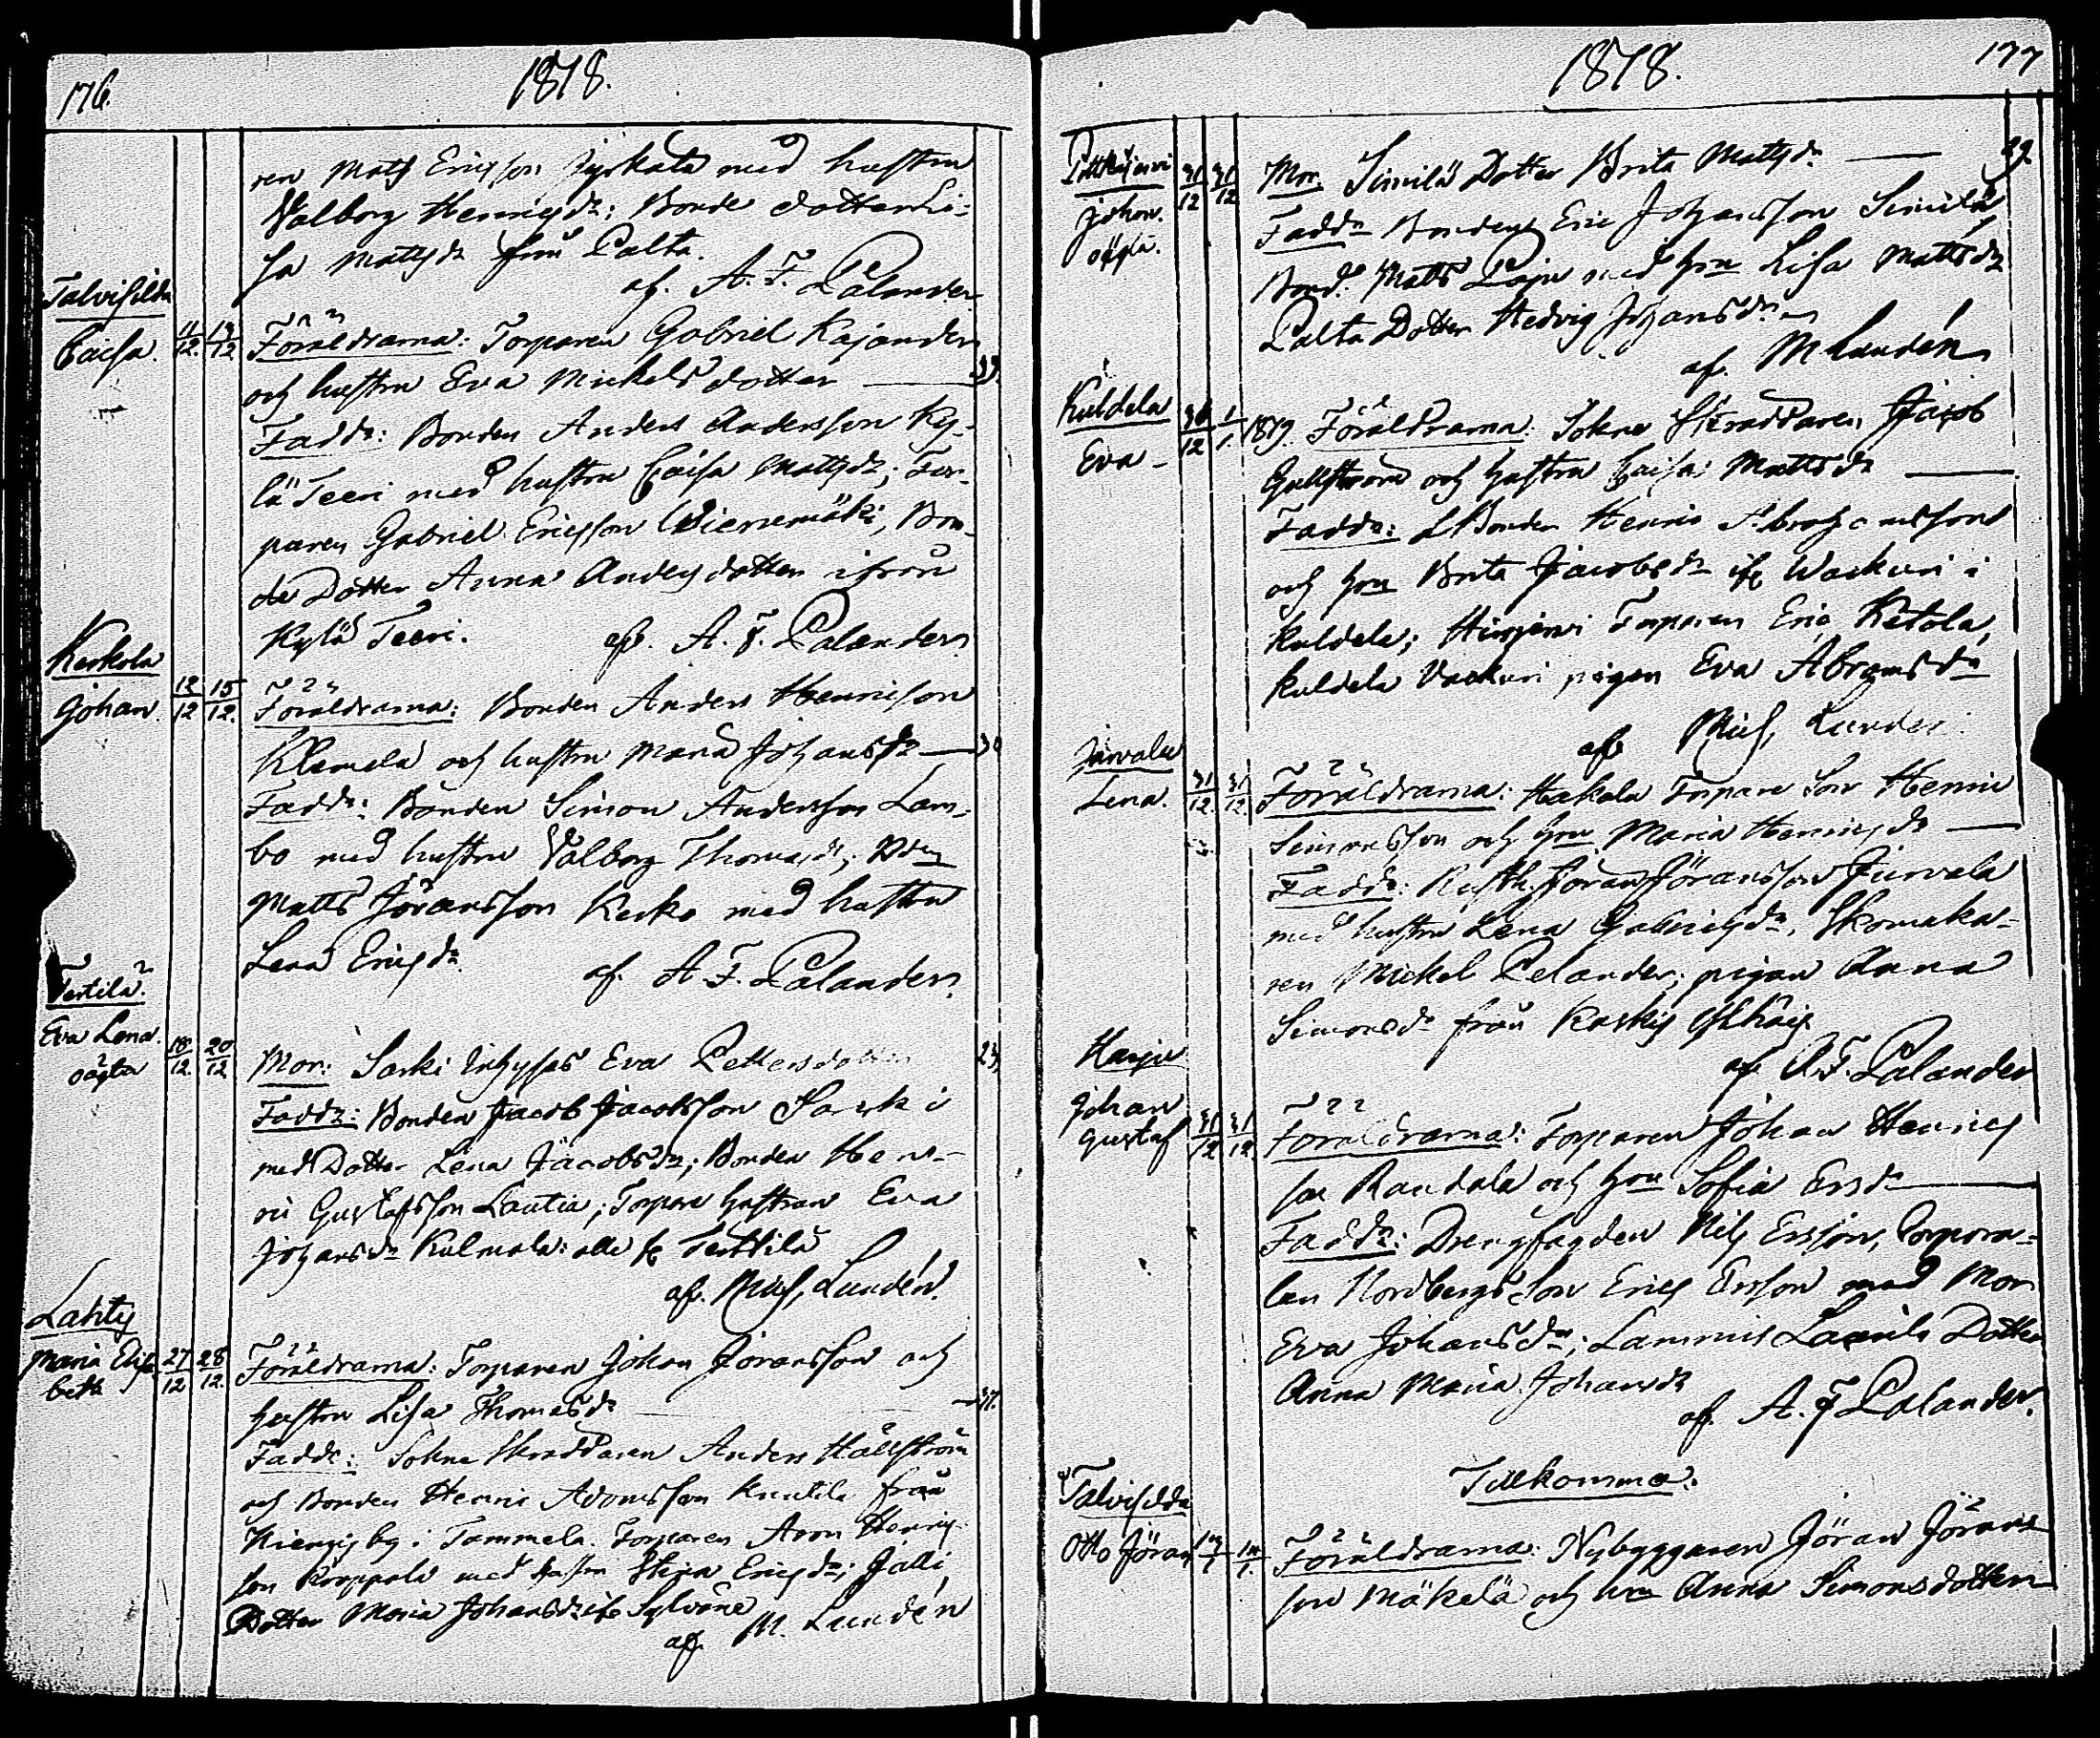 176.
1818.
ren Matts Ericsson Jyrkala med hustru
Valborg Henricsdr; Bonde dotter Li-
sa Mattsdr från Palta.
af. A. F. Palander
Talvisilda
Caisa. 11/12 13/12 Föräldrarna: Torparen Gabriel Kajander
och hustru Eva Mickelsdotter
Faddr: Bonden Anders Andersson Ky-
lä Teeri med hustru Caisa Mattsdr; Tor-
paren Gabriel Ericsson Wierremäki, Bon-
de Dotter Anna Andersdotter ifrån
Kylä Teeri. af. A. F. Palander
Keskola
Johan. 12/12 15/12 Föräldrarna: Bonden Anders Henricson
Klemela och hustru Maria Johansdr 30
Faddr: Bonden Simon Andersson Lam-
bo med hustru Valborg Thomasdr; Bden
Matts Jöransson Kesko med hustru
Lena Ericsdr. af. A. F. Palander.
Terttilä.
Eva Lena
oägta 18/12 20/12 Mor: Sarki Inhyses Eva Pettersdotter 23
Faddr: Bonden Jacob Jacobsson Sarki
med Dotter Lena Jacobsdr; Bonden Hen-
ric Gustafsson Lautia; Torpare hustrun Eva
Johansdr Kulmala: alle fr Terttilä
af. Mich, Lundén.
Lahty
Maria Elisa
beth 27/12 28/12 Föräldrarna: Torparen Johan Jöransson och
hustru Lisa Thomasdr 37.
Faddr: Sokne Skräddaren Anders Hällström
och Bonden Henric Adamsson Knutila från
by i Tammela. Torparen Aron Henrics-
son Kroppola med hustru Stina Ericsdr; Jälli
Dotter Maria Johansdr ifr Sylväne
af. M. Lundén
1818.
177
Pitkäjervi
Johan.
oägta. 31/12 31/12 Mor. Similä Dotter Brita Mattsdr 29.
Faddr Bonden Eric Johansson Similä
Bond. Matts Laju med hru Lisa Mattsdr
Palta Dotter Hedvig Johansdr
af. M Lundén
Kuldela
Eva 30/12 1/1 1819. Föräldrarna: Sokne Skräddaren Jacob
Gullström och hustru Caisa Mattsdr
Faddr: Bonden Henric Abrahamsson
och hru Brita Jacobsdr ifr Wackuri i
Kuldela; Hirsjervi Torparen Eric Ketola,
Kuldela Vackuri pigan Eva Abramsdr
af Mich, Lunden
Jurvala
Lena. 31/12 31/12 Föräldrarna: Hakala Torpare Son Henric
Simonsson och hru Maria Henricsdr
Faddr: Rusth. Jöran Jöransson Jurvala
med hustru Lena Gabrielsdr, Skomaka-
ren Mickel Pelander; pigan Anna
Simonsdr från
af A. F. Palander
Harju
Johan
Gustaf 31/12 31/12 Föräldrarna: Torparen Johan Henrics
son Randala och hru Sofia Ersdr
Faddr: Drengfogden Nils Ersson, Corpora-
len Nordbergs Son Erics Ersson med Mor
Eva Johansdr; Lammis Laurila Dotter
Anna Maria Johansdr
af. A. F Palander.
Tillkomma:
Talvisilda
Otto Jöran Föräldrarna: Nybyggaren Jöran Jörans
son Mäkelä och hru Anna Simonsdotter